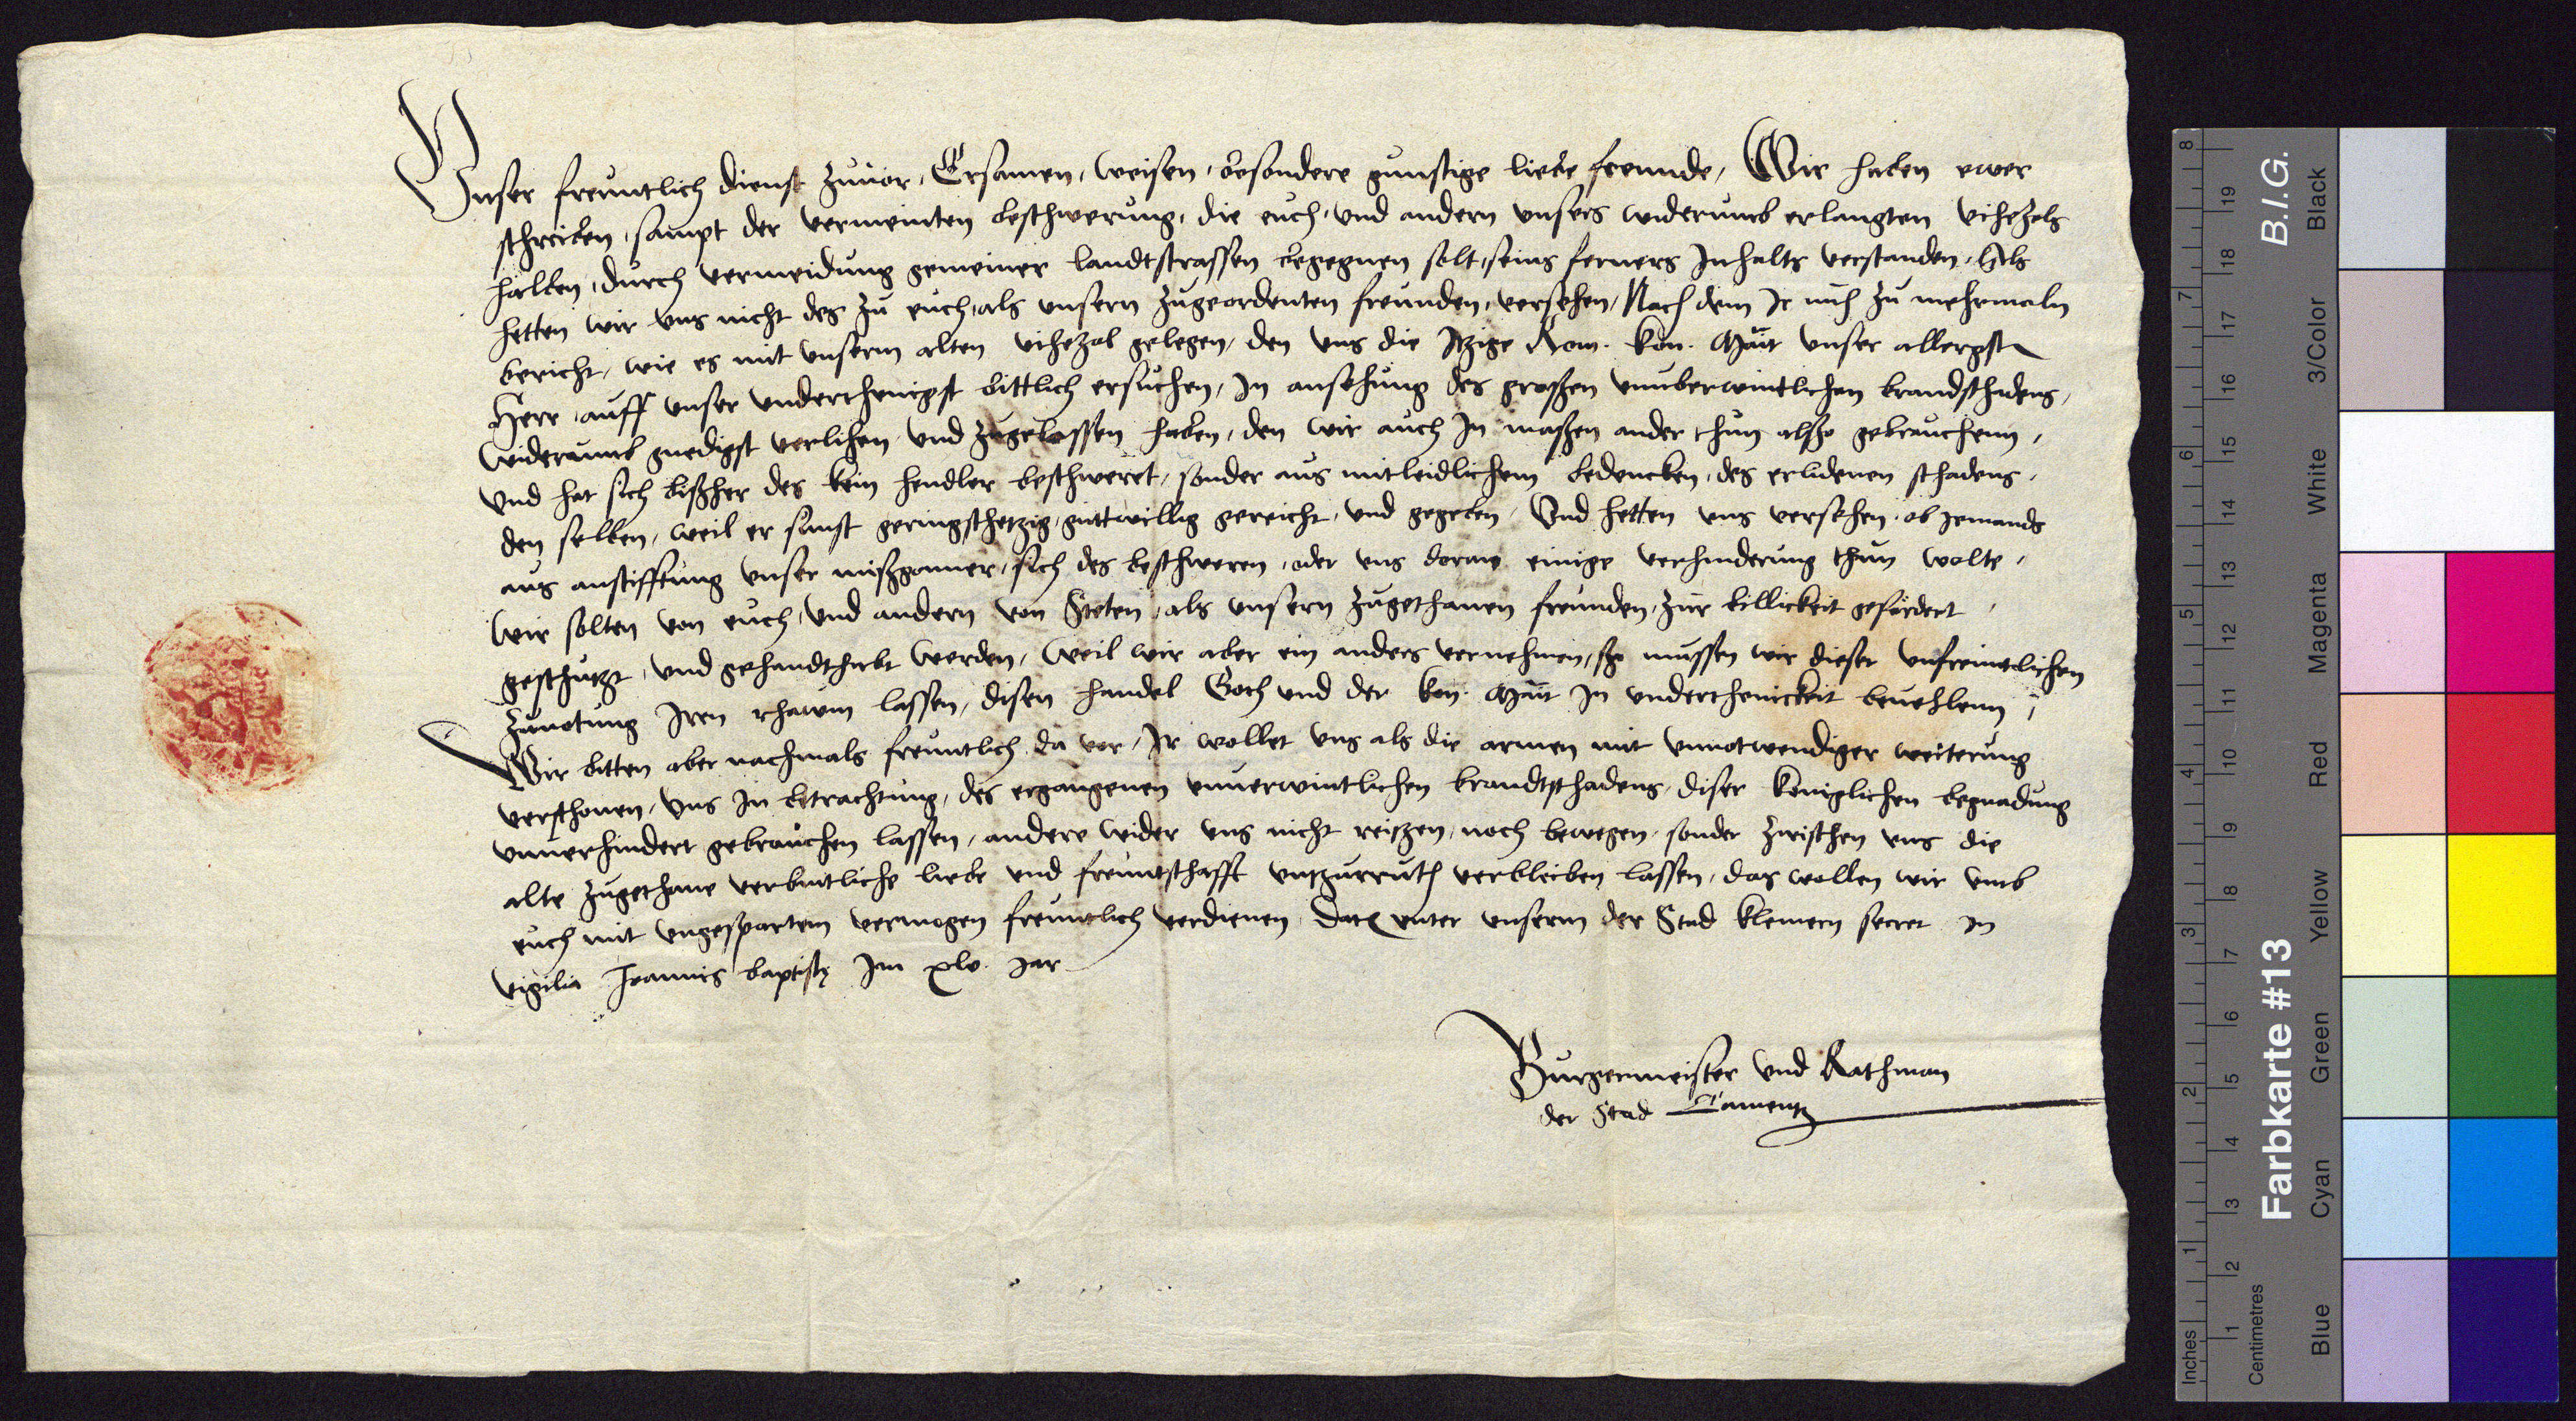 Unser freuntlich dienst zuuor, Ersamen, weisen, besondere gunstige liebe freunde, Wir haben ewer
schreiben, sampt der vermeinten beschwerung, die euch, und andern unsers widerumb erlangten vihezols
halben, durch vermeidung gemeiner landtstrassen begegnen solt, seins ferners Inhalts verstanden, Als
hetten wir uns nicht des zu euch, als unsern zugeordenten freunden, versehen, Nach dem Ir euch zu mehrmaln
bericht, wie es mit unserm alten vihezol gelegen, den uns die Itzige Rom. kon. Mait unser allergst
Herr, auff unser underthenigst bittlich ersuchen, In ansehung des grossen unuberwintlichen brandschadens,
widerumb gnedigst verlihen und zugelassen haben, den wir auch In massen ander thun also gebrauchenn,
Und hat sich bissher des kein hendler beschweret, sonder aus mitleidlichem bedencken, des erlidenen schadens,
den selben, weil er sunst geringschetzig, guttwillig gereicht, und gegeben, Und hetten uns versehen, ob jemands
aus anstifftung unser missgonner, sich des beschweren, oder uns doran einige verhinderung thun wolte,
Wir solten von euch, und andern von Steten, als unsern zugethanen freunden, zur billickeit gefordert,
geschutzt, und gehandthabt werden, Weil wir aber ein anders vernehmen, so mussen wir dieser unfreuntlichen
zunotung Iren rhawm lassen, disen handel Goth und der kon. Mait In underthenickeit beuehlenn,
Wir bitten aber nachmals freuntlich da vor, Ir wollet uns als die armen mit unnotwendiger weiterung
verschonen, uns In betrachtung, des ergangenen unuerwintlichen brandtschadens, diser koniglichen begnadung
unuerhindert gebrauchen lassen, andere wider uns nicht reitzen, noch bewegen, sonder zwischen uns die
alte zugethane verbuntliche liebe und freuntschafft untzurruth verbleiben lassen, das wollen wir umb
euch mit ungespartem vermogen freuntlich verdienen, Dat unter unserm der Stad kleinern secret In
vigilia Joannis baptiste Im xlv. Jar
Burgermeister und Rathman
der Stad Camentz
Inches
Centimetres
1 2 3 4 5 6 7 8
1 2 3 4 5 6 7 8 9 10 11 12 13 14 15 16 17 18 19
Farbkarte #13
B.I.G.
Blue Cyan Green Yellow Red Magenta White 3/Color Black